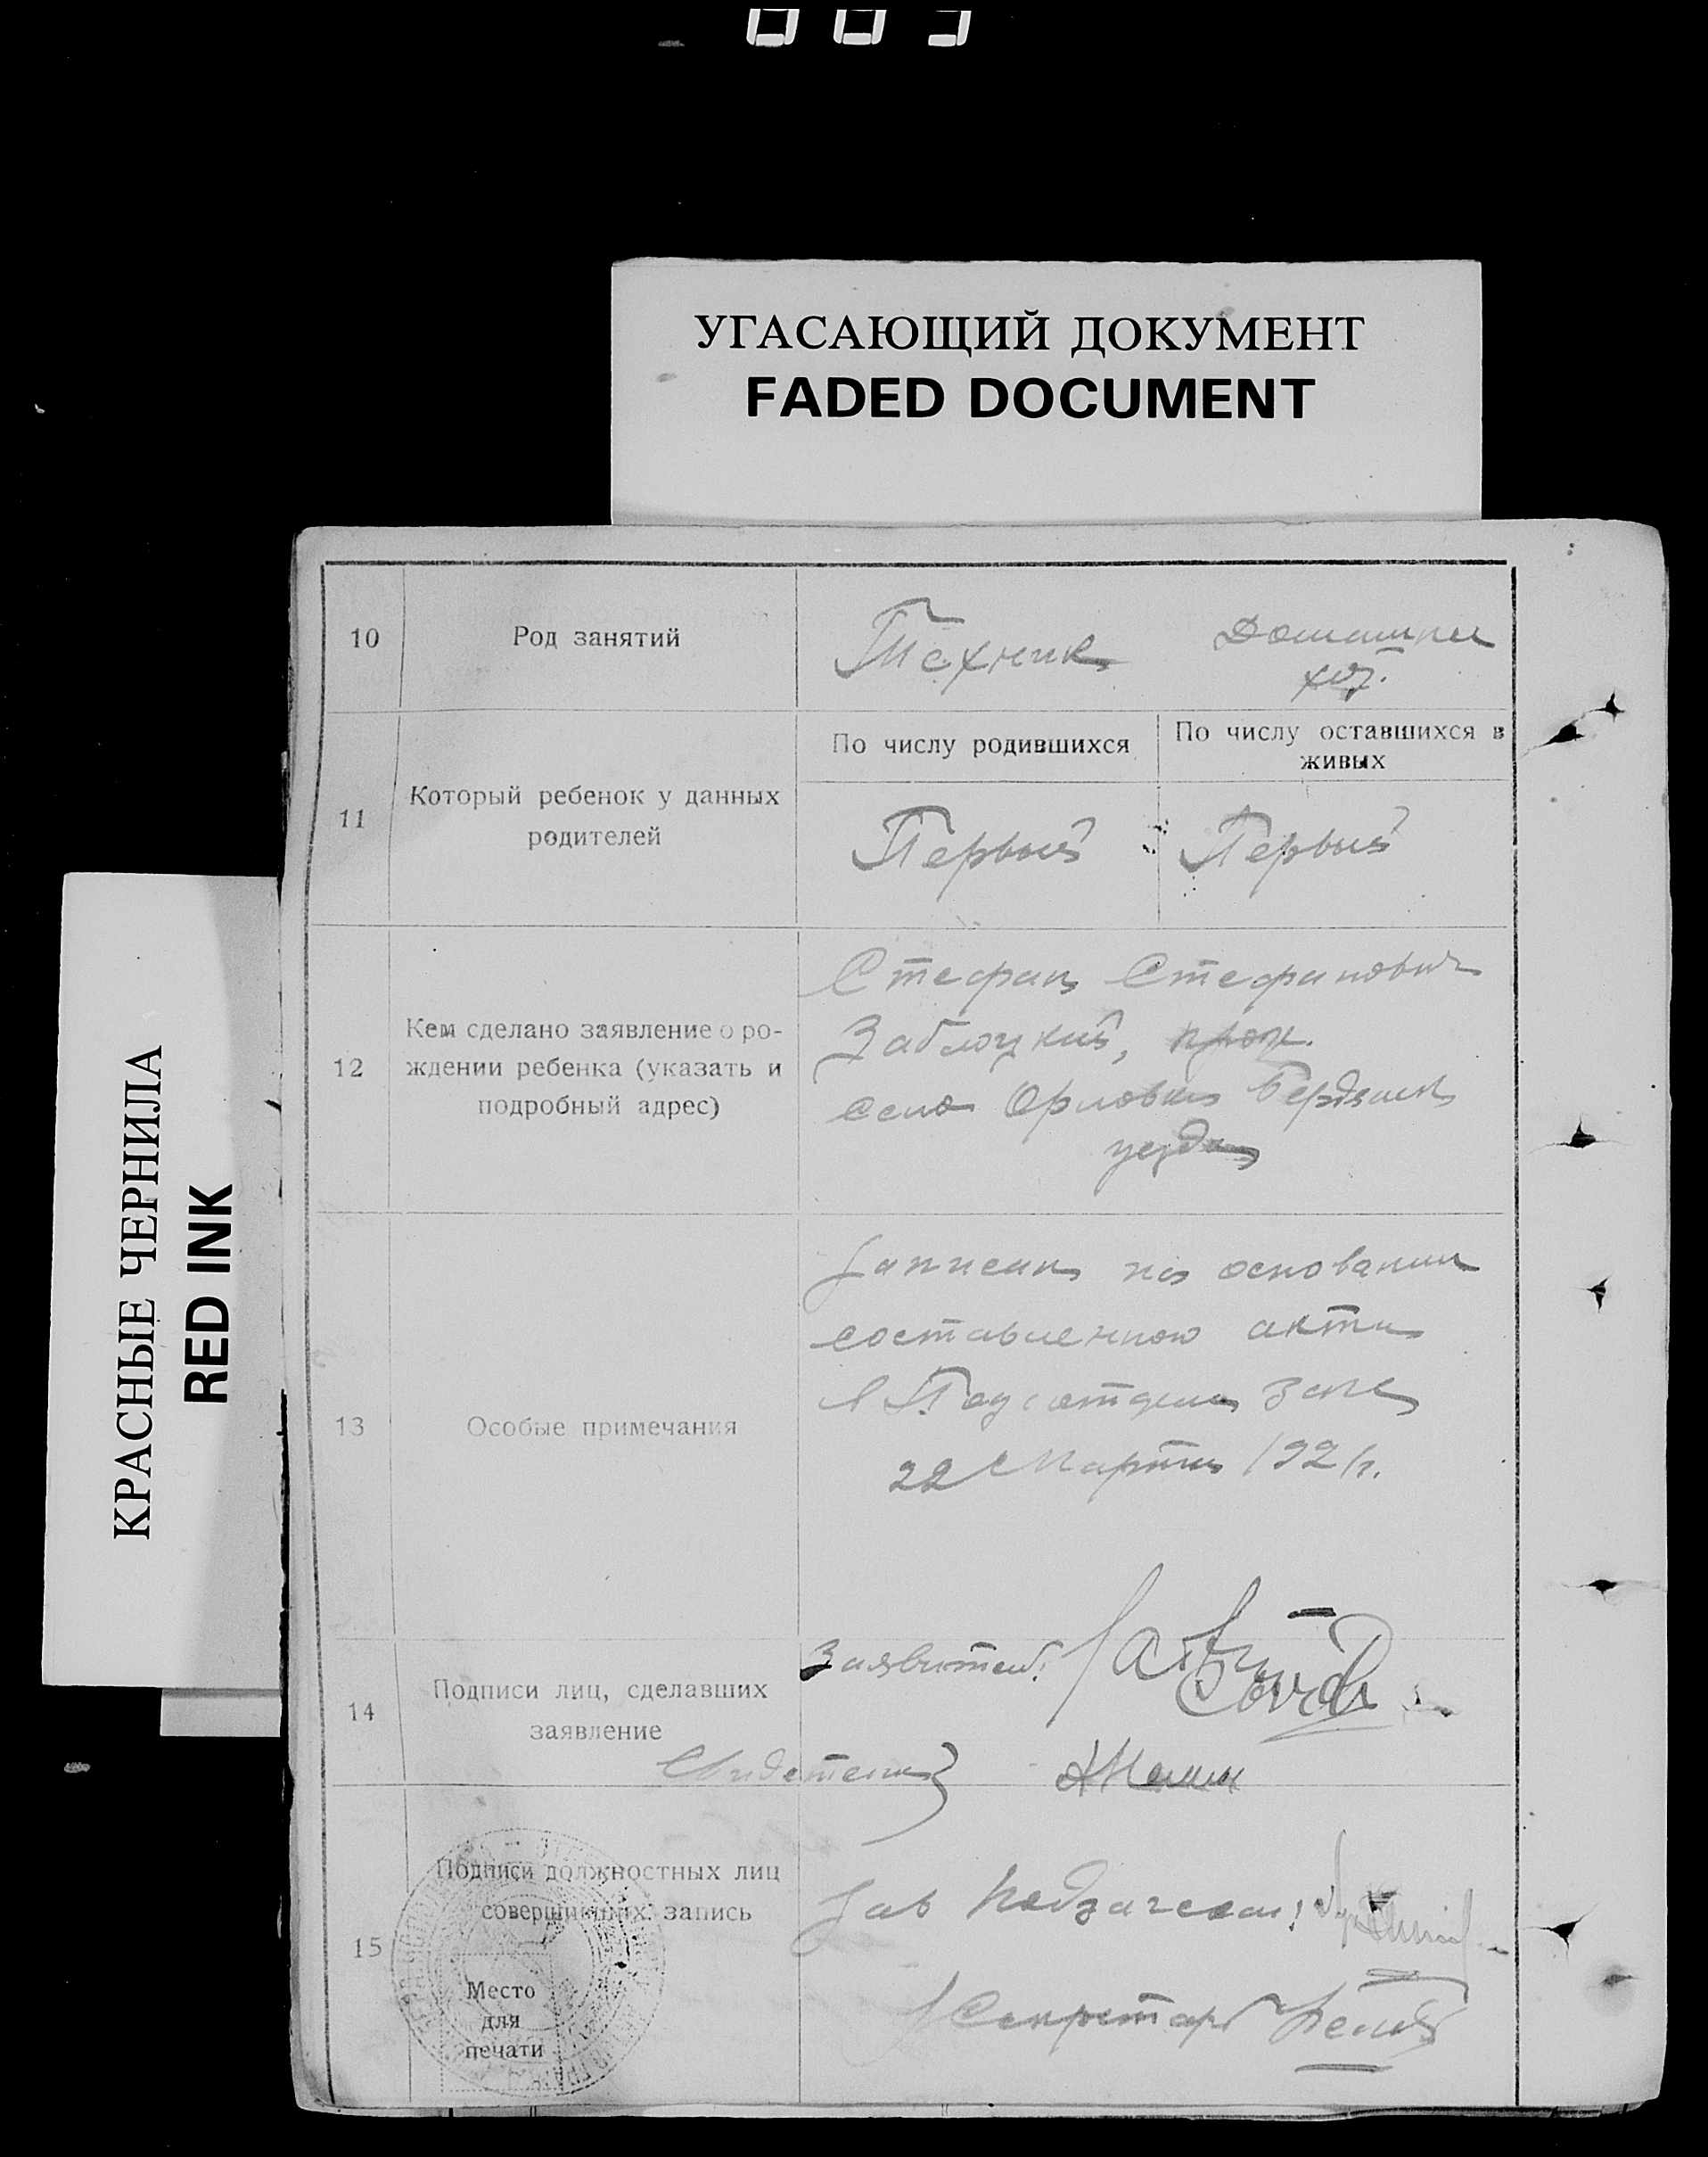 УГАСАЮЩИЙ ДОКУМЕНТ
FADED DOCUMENT
КРАСНЫЕ ЧЕРНИЛА
RED INK
10
Род занятий
Техник
Домашнее
хоз.
11
Который ребенок у данных
родителей
По числу родившихся
По числу оставшихся в
живых
Первый
Первый
12
Кем сделано заявление о ро-
ждении ребенка (указать и
подробный адрес)
Стефан Стефанович
Заблоцкий, прож.
село Орловка Бердянск
уезда
13
Особые примечания
Записан на основании
составленного акта
в
22 Марта 1921г.
14
Подписи лиц, сделавших
заявление
Заявитель:
Свидетели
15
Подписи должностных лиц
совершивших запись
Место
для
печати
Зав
Секретарь